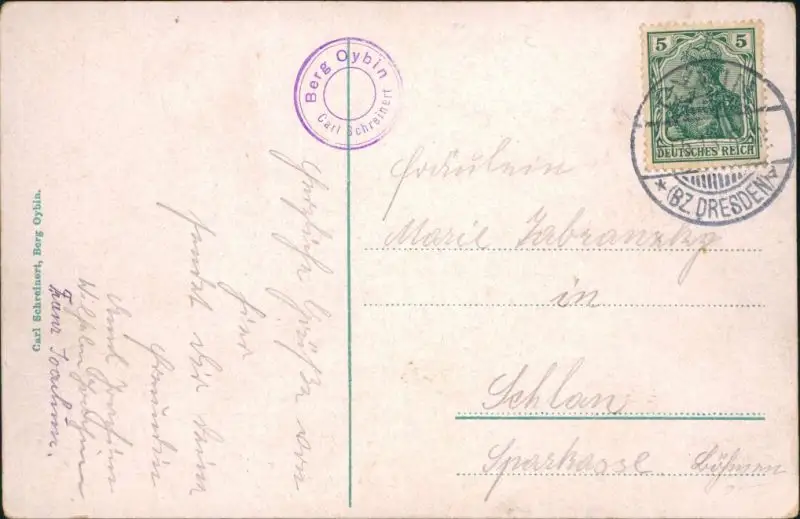 Berg Oybin
Carl Schreinert
5 5
DEUTSCHES REICH
* (BZ. DRESDEN) A
Fräulein
Marie Zabranzky
in
Schlan
Sparkasse. Böhmen
Herzliche Grüße von
hier
sendet Dir deine
Freundin
Wilhelm
Franz Joachim.
Carl Schreinert, Berg Oybin.